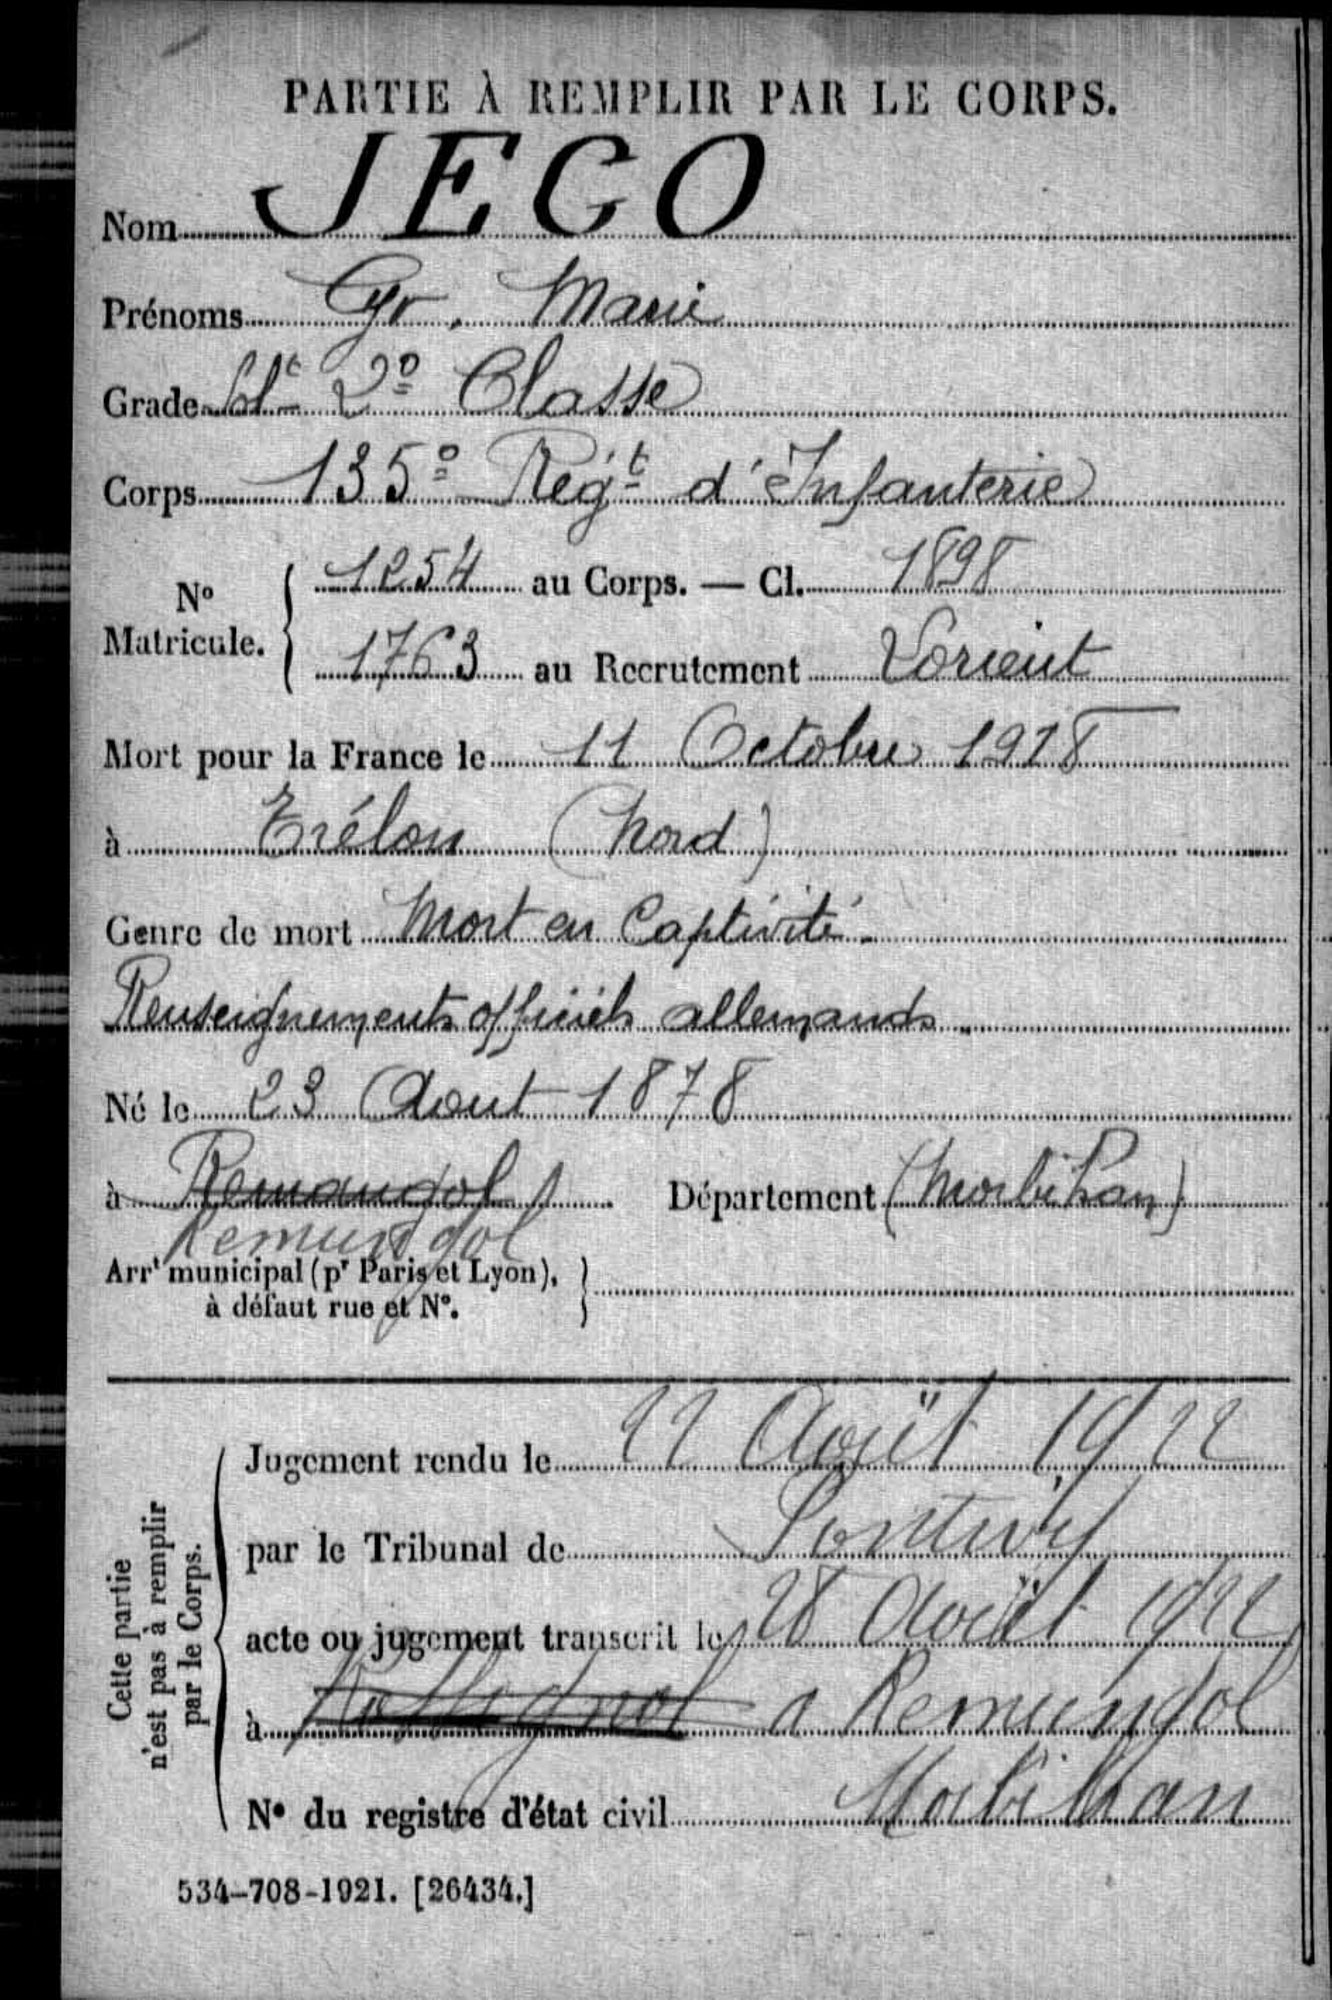 PARTIE À REMPLIR PAR LE CORPS.
Nom JEGO
Prénoms Cyr. Marie
Grade Slt 2e Classe
Corps 135e Régt d'Infanterie
No Matricule. 1254 au Corps. — Cl. 1898
1763 au Recrutement Lorient
Mort pour la France le 11 Octobre 1918
à Trélon (Nord)
Genre de mort Mort en Captivité.
Renseignements officiels allemands.
Né le 23 Aout 1878
à Remangol Département (Morbihan)
Remungol
Arrt municipal (pr Paris et Lyon),
à défaut rue et No.
Cette partie
n'est pas à remplir
par le Corps.
Jugement rendu le 22 Août 1922
par le Tribunal de Pontivy
acte ou jugement transcrit le 28 Août 1922
à à Remungol
No du registre d'état civil Morbihan
534-708-1921. [26434.]